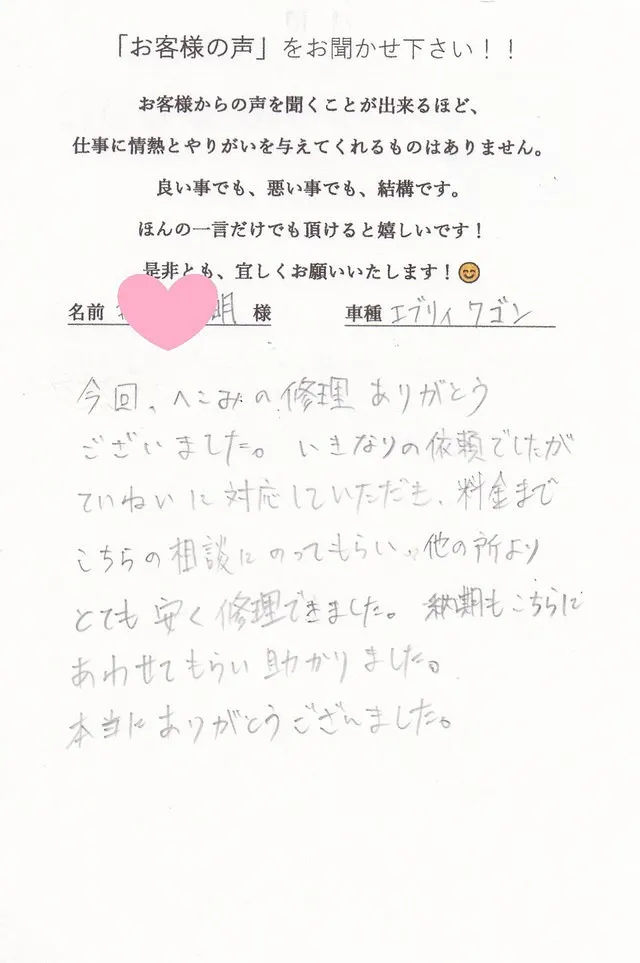 「お客様の声」をお聞かせ下さい！！
お客様からの声を聞くことが出来るほど、
仕事に情熱とやりがいを与えてくれるものはありません。
良い事でも、悪い事でも、結構です。
ほんの一言だけでも頂けると嬉しいです！
是非とも、宜しくお願いいたします！😊
名前 明 様 車種 エブリィワゴン
今回、へこみの修理ありがとう
ございました。いきなりの依頼でしたが
ていねいに対応していただき、料金まで
こちらの相談にのってもらい、他の所より
とても安く修理できました。納期もこちらに
あわせてもらい助かりました。
本当にありがとうござんました。